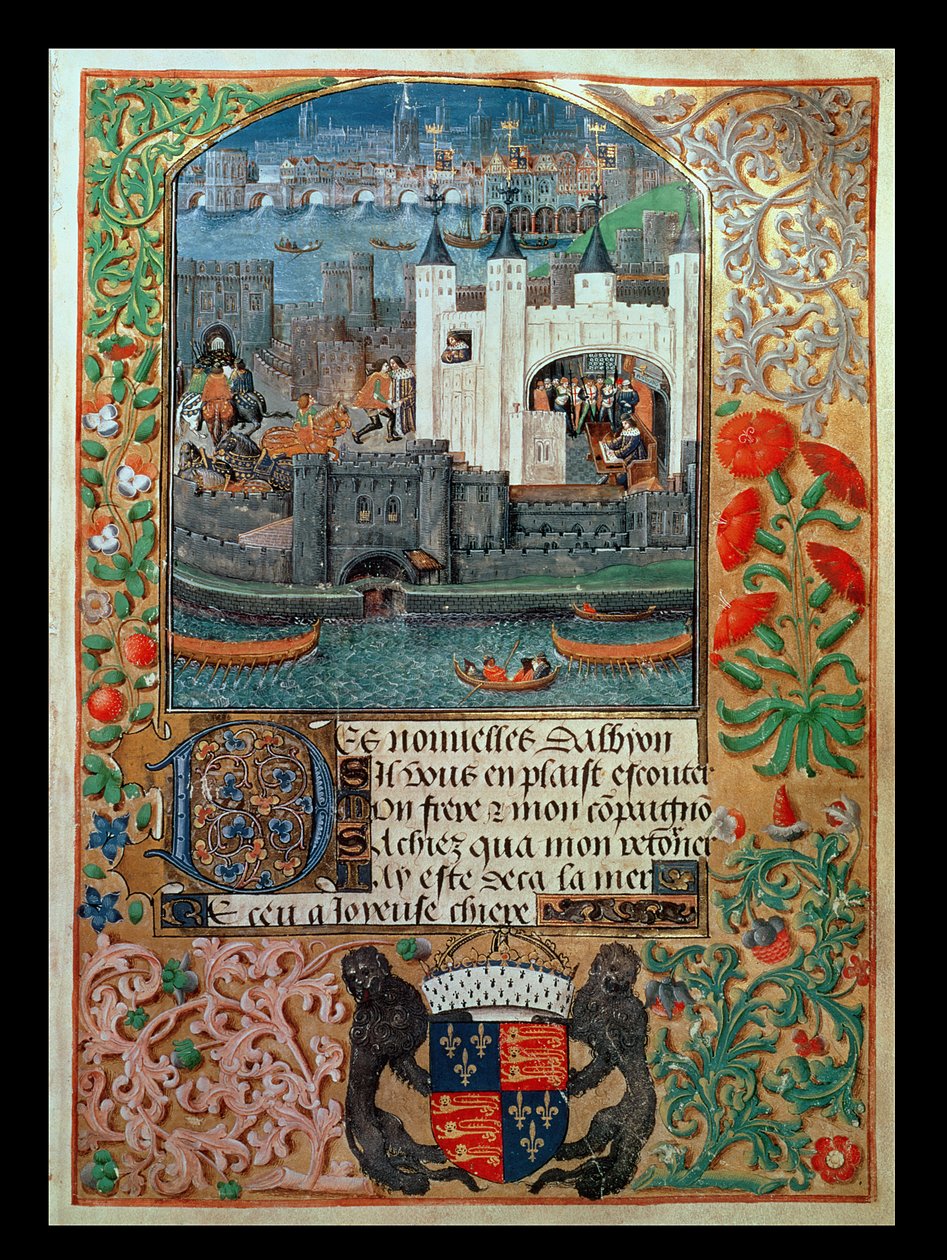 DEs nouuelles dalbyon
Sil vous en plaist escouter
Mon frere & mon cōpaignō
Sachiez qua mon retorner
Jay este deca la mer
Receu a Joyeuse chiere